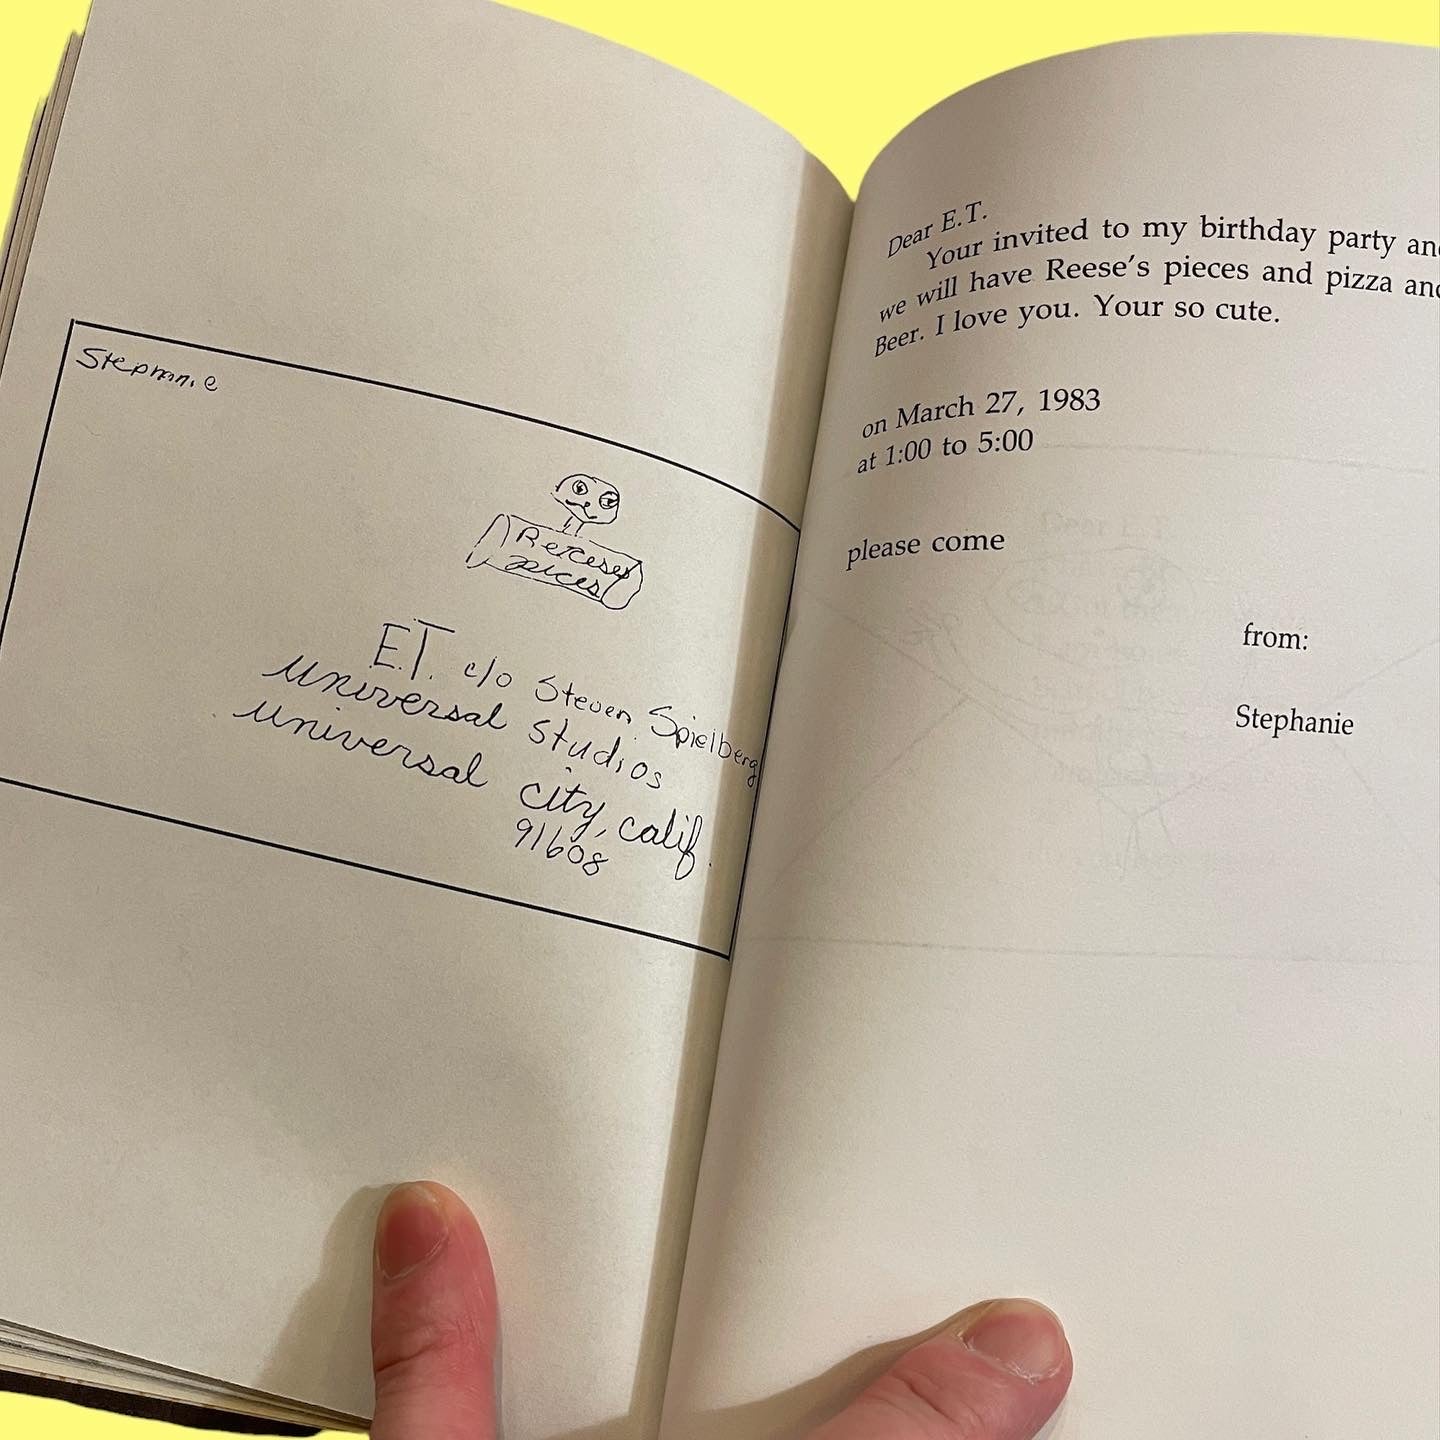 Stephanie
Reeceses
pices
E.T. c/o Steven Spielberg
universal studios
universal city, calif.
91608
Dear E.T.
Your invited to my birthday party an
we will have Reese's pieces and pizza and
Beer. I love you. Your so cute.
on March 27, 1983
at 1:00 to 5:00
please come
from:
Stephanie